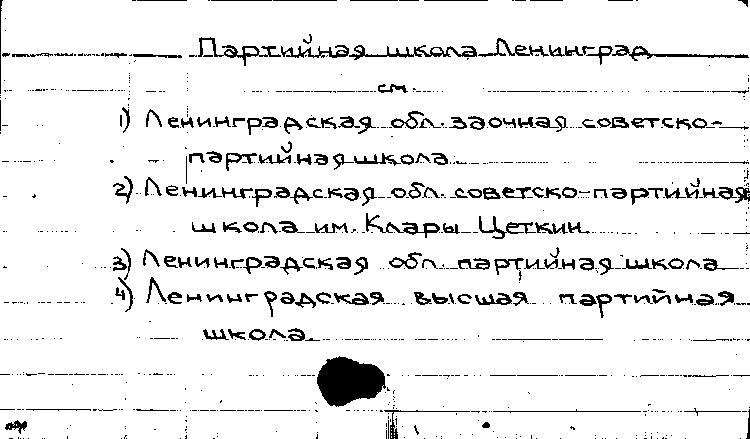 Партийная школа Ленинград
см.
1) Ленинградская обл. заочная советско-
партийная школа.
2) Ленинградская обл. советско-партийная
школа им. Клары Цеткин.
3) Ленинградская обл. партийная школа
4) Ленинградская высшая партийная
школа.